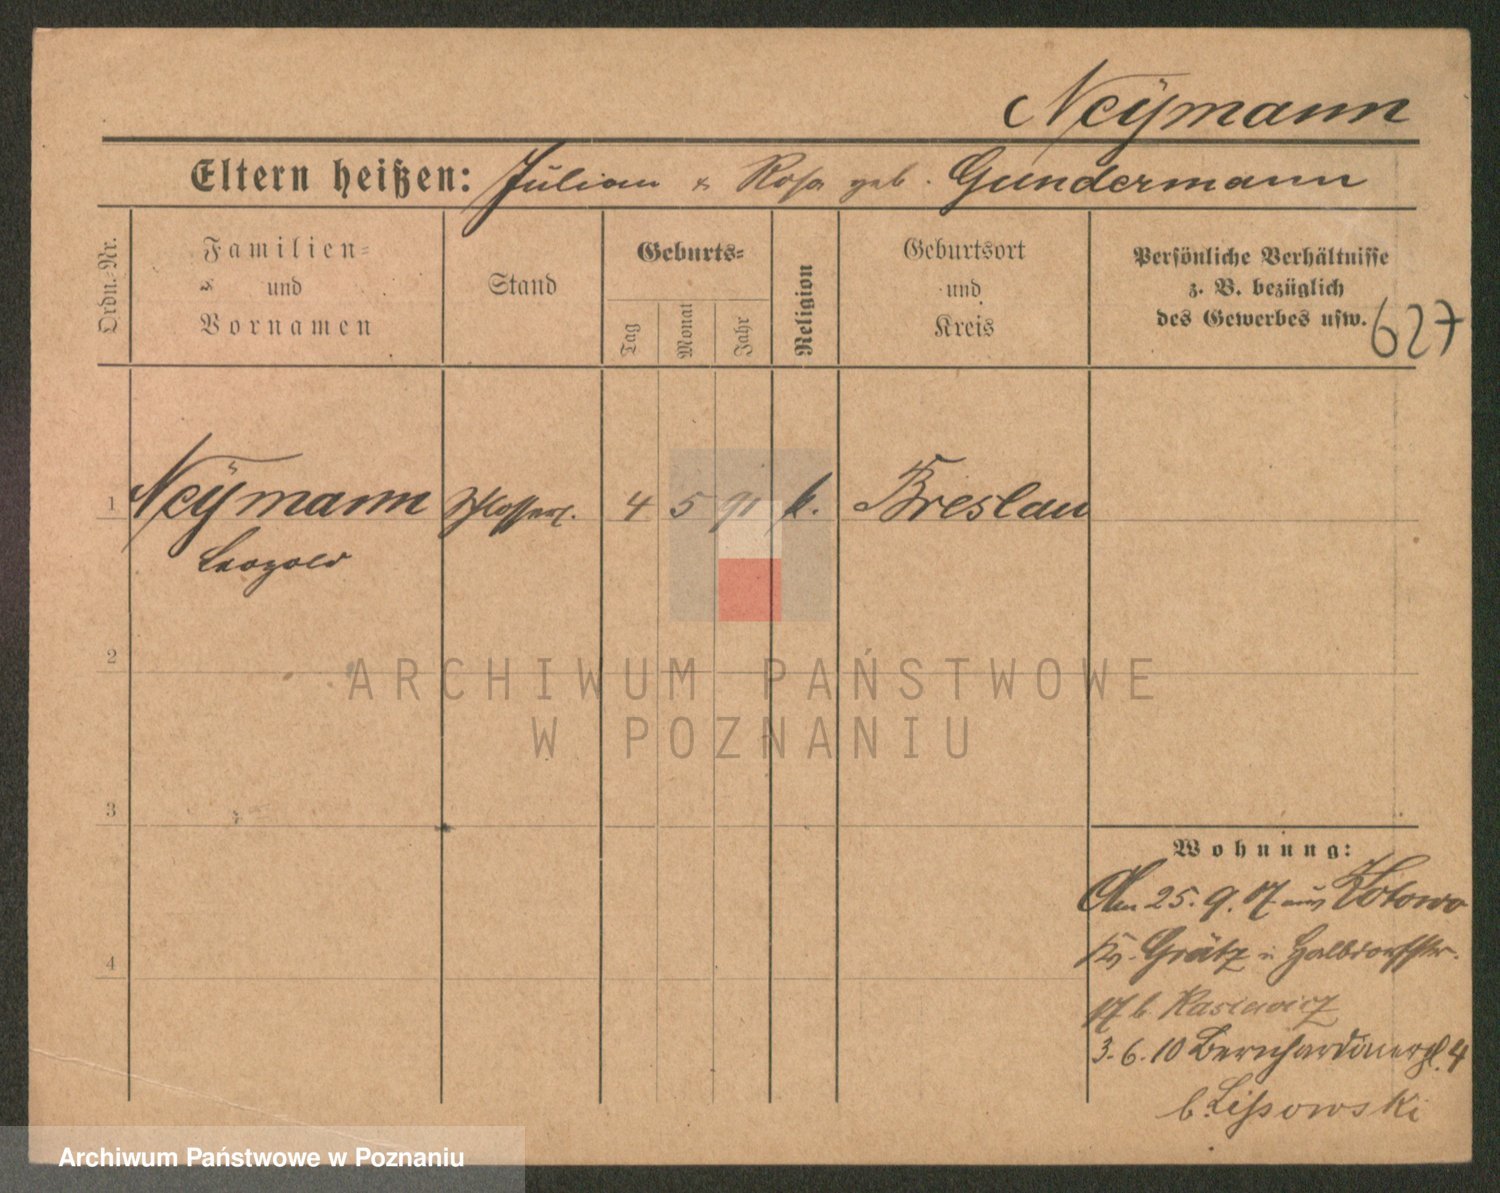 Neÿmann
Eltern heißen: Julian & Rosa geb. Gundermann
Ordn.-Nr.
Familien-
und
Vornamen
Stand
Geburts-
Tag
Monat
Jahr
Religion
Geburtsort
und
Kreis
Persönliche Verhältnisse
z. B. bezüglich
des Gewerbes usw.
627
1 Neÿmann Schlosserl. 4 5 91 k. Breslau
Leopold
2
ARCHIWUM PAŃSTWOWE
W POZNANIU
3
Wohnung:
Am 25. 9. 07 aus Kotowo
Kr. Grätz n. Halbdorfstr.
17 b. Kasiewicz
4
3. 6. 10 Bernhardinerpl. 4
b. Lissowski
Archiwum Państwowe w Poznaniu